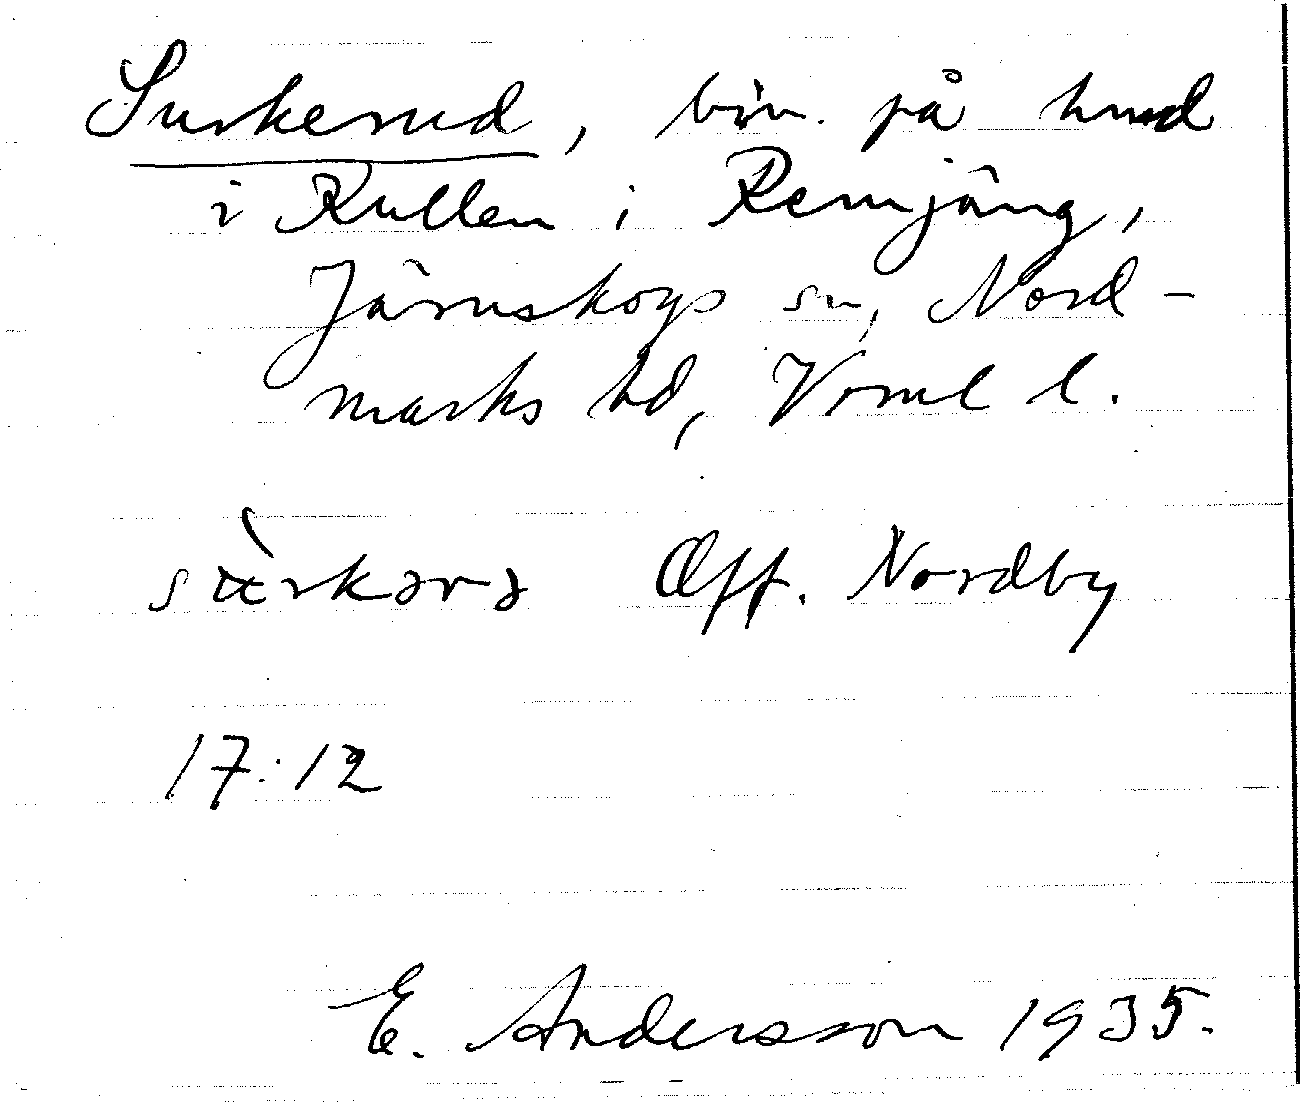 Surkerud, bin. på hmd
i Kullen i Remjäng,
Järnskogs sn, Nord-
marks hd, Vrml l.
Uff. Nordby
17:12
E. Andersson 1935.